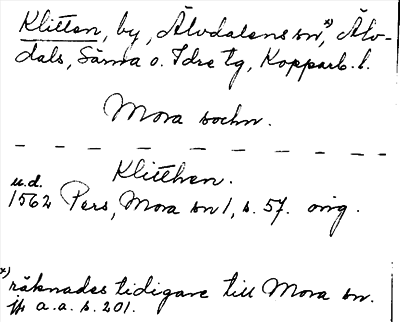 Klitten, by, Älvdalens sn,*) Älv-
dals, Särna o. Idre tg, Kopparb. l.
Mora sochn.
Klitthen.
u.d.
1562 Pers, Mora sn 1, s. 57. orig.
*) räknades tidigare till Mora sn.
jfr a.a. s. 201.